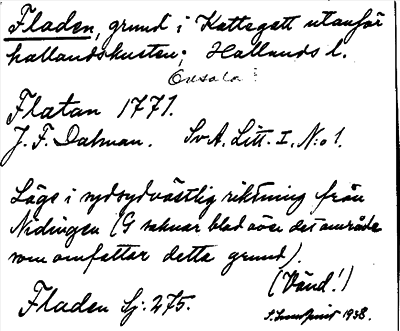 Fladen, grund i Kattegatt utanför
hallandskusten; Hallands l.
Onsala
Flatan 1771.
J. F. Dalman. SvA. Litt. I, N:o 1.
Lägs i sydsydvästlig riktning från
Nidingen (G saknar blad över det område
som omfattar detta grund).
(Vänd!)
Fladen Sj: 275.
1938.